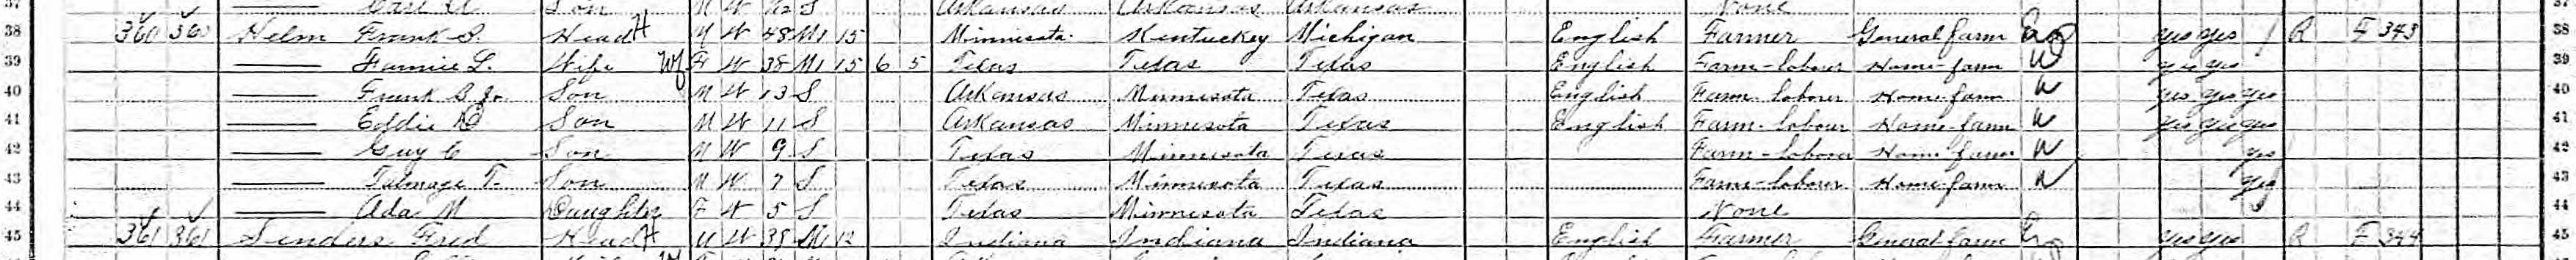 37 Carl Son M W S Arkansas Arkansas Arkansas None 37
38 360 360 Helm Frank S. Head H M W 48 M1 15 Minnisota Kentuckey Michigan English Farmer General farm yes yes 1 R F 343 38
39 —— Fannie L. Wife F W 38 M1 15 6 5 Texas Texas Texas English Farm-laborer Home-farm W yes yes 39
40 —— Frank S Jr. Son M W 13 S Arkansas Minnesota Texas English Farm-laborer Home farm W yes yes yes 40
41 —— Eddie D Son M W 11 S Arkansas Minnesota Texas English Farm-laborer Home-farm W yes yes yes 41
42 —— Guy C Son M W 9 S Texas Minnesota Texas Farm-laborer Home farm W yes 42
43 —— Talmage T. Son M W 7 S Texas Minnesota Texas Farm-laborer Home farm W yes 43
44 —— Ada M Daughter F W 5 S Texas Minnesota Texas None 44
45 361 361 Fred Head H M W M1 12 Indiana Indiana Indiana English Farmer General farm yes yes R F 344 45